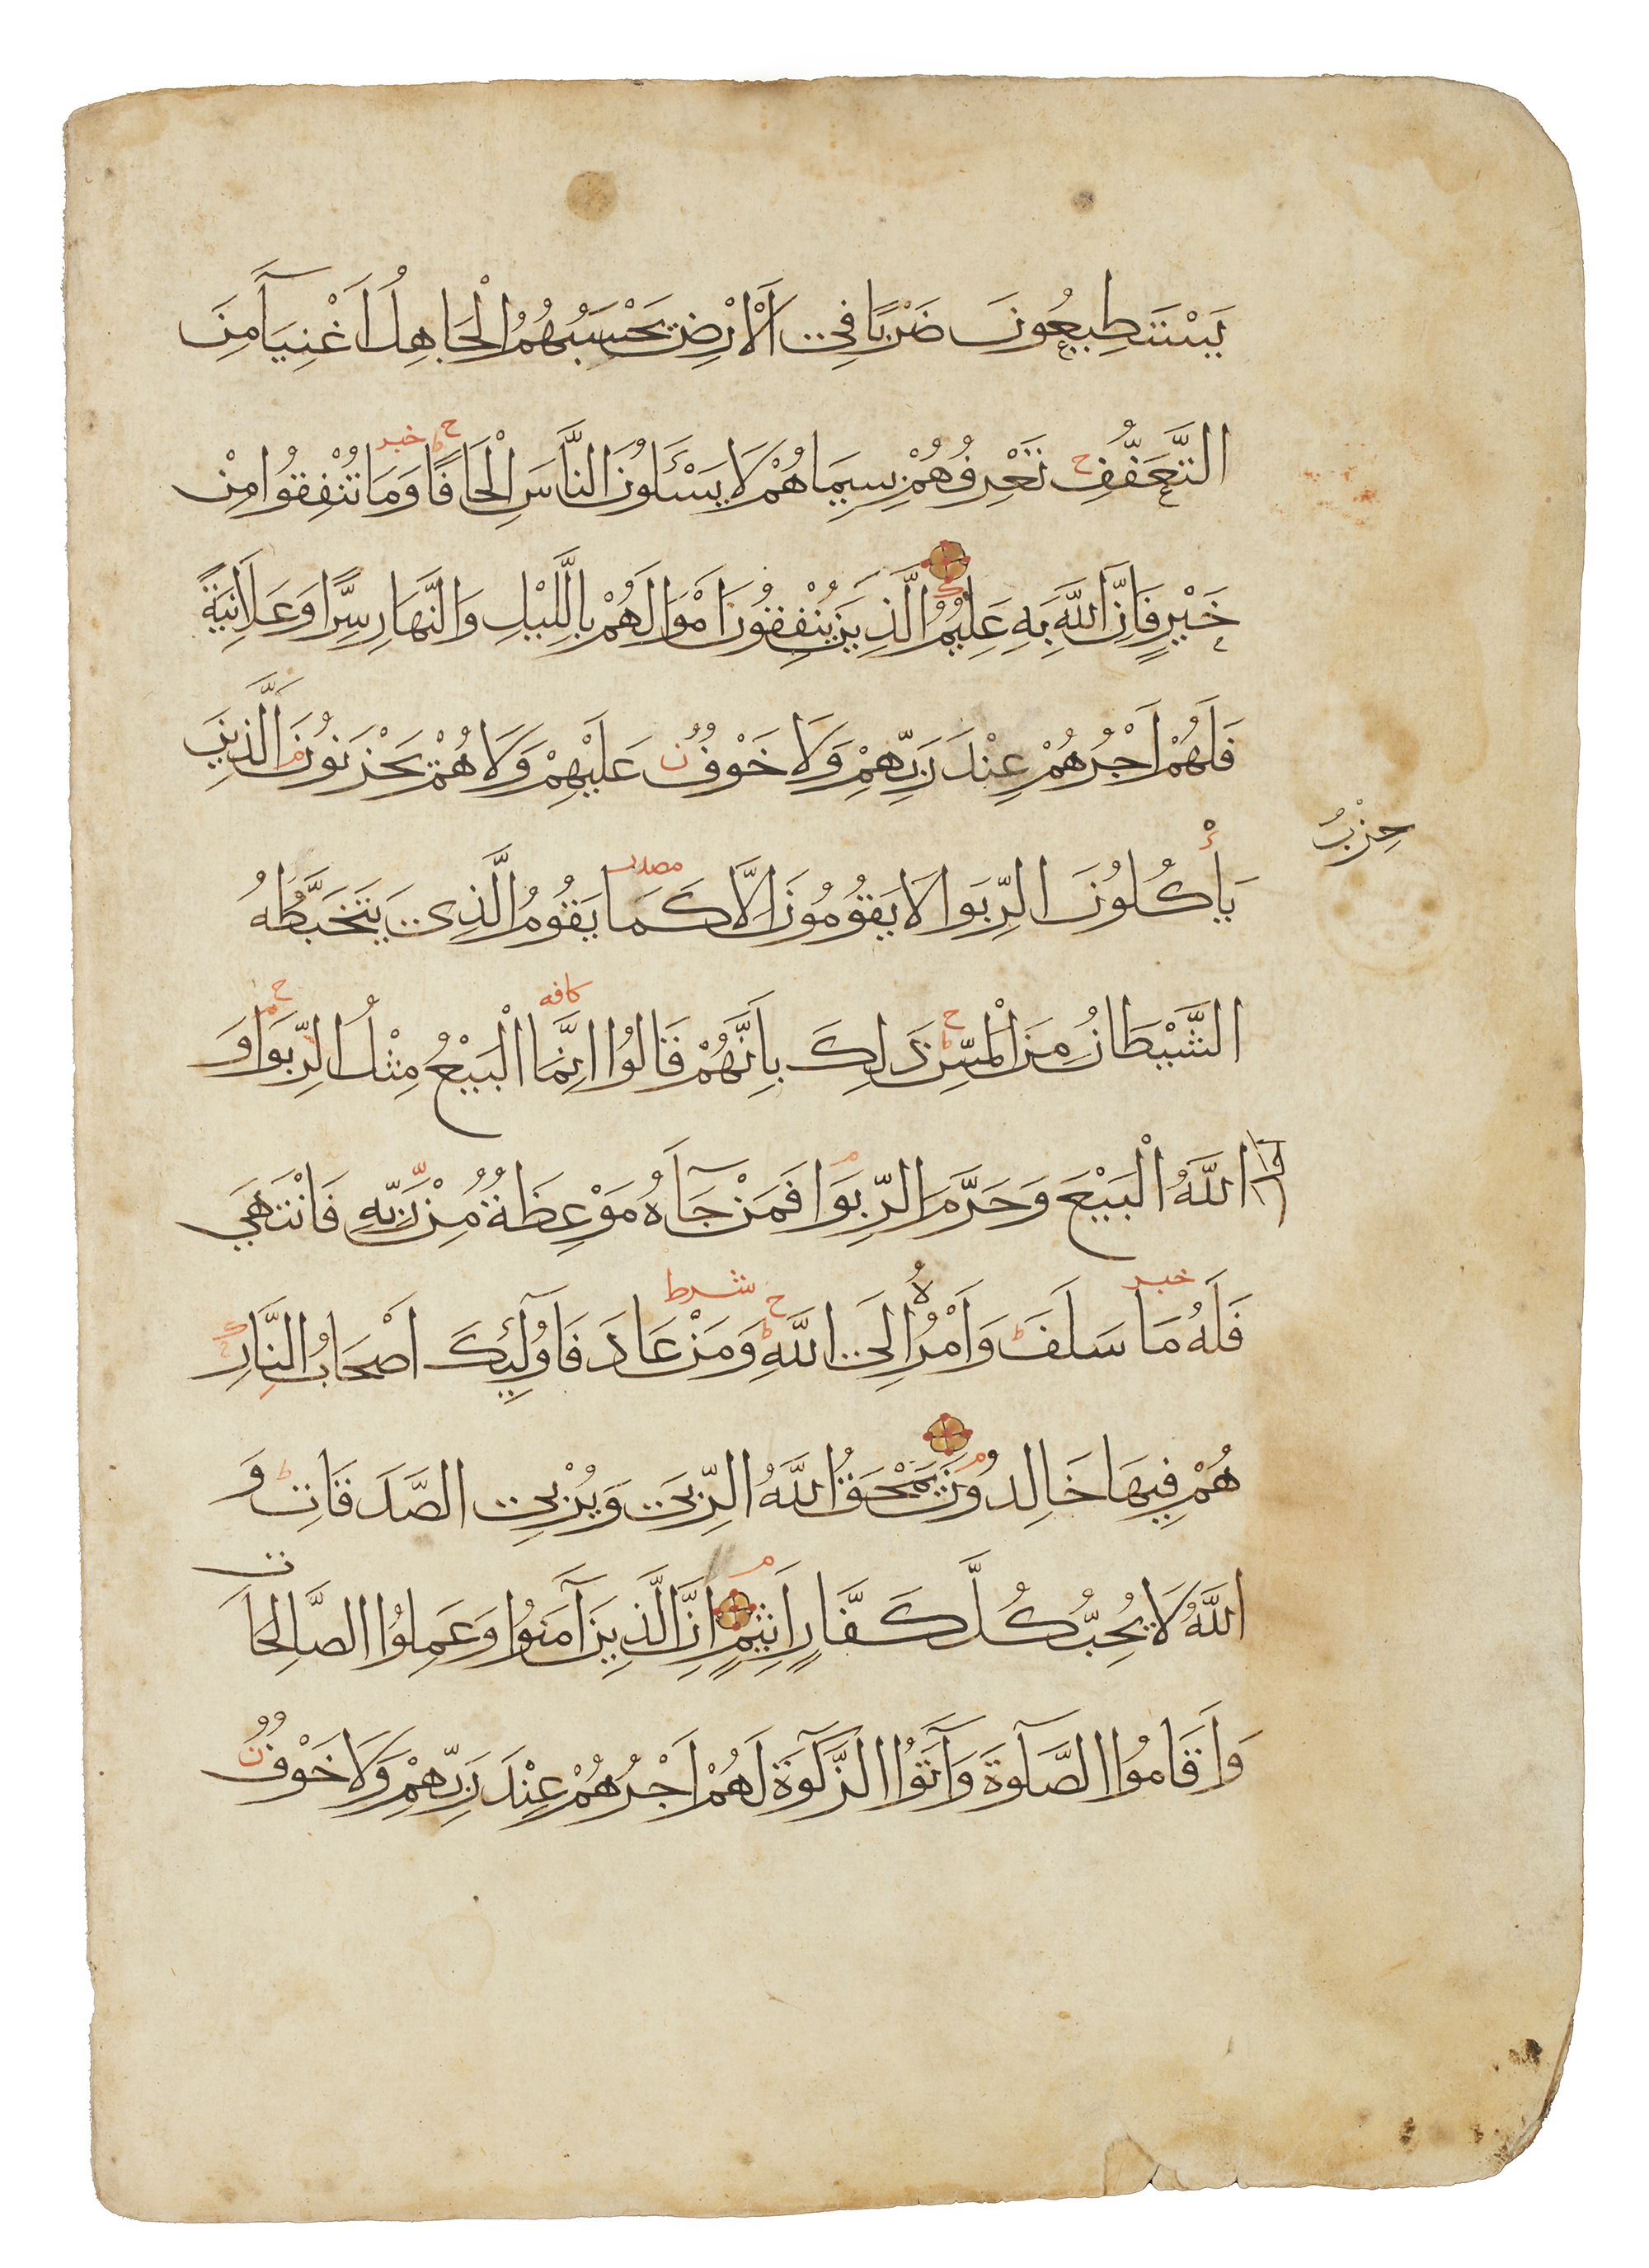 يَسْتَطِيعُونَ ضَرْبًا فِي الْاَرْضِ يَحْسَبُهُمُ الْجَاهِلُ اَغْنِيَآ مِنَ
خبر
التَّعَفُّفِ تَعْرِفُهُمْ بِسِيمَاهُمْ لَا يَسْـَٔلُونَ النَّاسَ اِلْحَافًا وَمَا تُنْفِقُوا مِنْ
خَيْرٍ فَاِنَّ اللَّهَ بِهِ عَلِيمٌ الَّذِينَ يُنْفِقُونَ اَمْوَالَهُمْ بِاللَّيْلِ وَالنَّهَارِ سِرًّا وَعَلَانِيَةً
فَلَهُمْ اَجْرُهُمْ عِنْدَ رَبِّهِمْ وَلَا خَوْفٌ عَلَيْهِمْ وَلَا هُمْ يَحْزَنُونَ الَّذِينَ
حِزْبٌ
مصدر
يَأْكُلُونَ الرِّبَوا لَا يَقُومُونَ اِلَّا كَمَا يَقُومُ الَّذِي يَتَخَبَّطُهُ
كافه
الشَّيْطَانُ مِنَ الْمَسِّ ذَلِكَ بِاَنَّهُمْ قَالُوا اِنَّمَا الْبَيْعُ مِثْلُ الرِّبَوا وَ
اَحَلَّ اللَّهُ الْبَيْعَ وَحَرَّمَ الرِّبَوا فَمَنْ جَآَهُ مَوْعِظَةٌ مِنْ رَبِّهِ فَانْتَهَى
خبر شرط
فَلَهُ مَا سَلَفَ وَاَمْرُهُ اِلَى اللَّهِ وَمَنْ عَادَ فَاُولَٓئِكَ اَصْحَابُ النَّارِ
هُمْ فِيهَا خَالِدُونَ يَمْحَقُ اللَّهُ الرِّبَى وَيُرْبِي الصَّدَقَاتِ وَ
اللَّهُ لَا يُحِبُّ كُلَّ كَفَّارٍ اَثِيمٍ اِنَّ الَّذِينَ آمَنُوا وَعَمِلُوا الصَّالِحَاتِ
وَاَقَامُوا الصَّلَوةَ وَآتَوُا الزَّكَوةَ لَهُمْ اَجْرُهُمْ عِنْدَ رَبِّهِمْ وَلَا خَوْفٌ